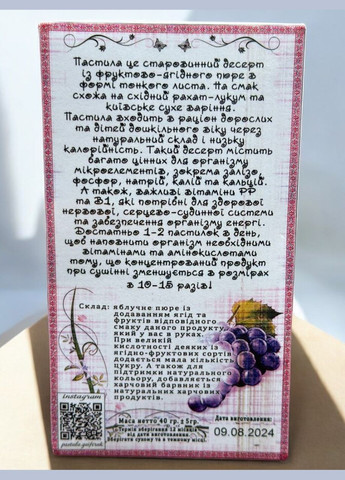 Пастила це старовинний десерт
із фруктово-ягідного пюре в
формі тонкого листа. На смак
схожа на східний рахат-лукум та
київське сухе варіння.
Пастила входить в раціон дорослих
та дітей дошкільного віку через
натуральний склад і низьку
калорійність. Такий десерт містить
багато цінних для організму
мікроелементів, зокрема залізо,
фосфор, натрій, калій та кальцій.
А також, важливі вітаміни РР
та В1, які потрібні для здорової
нервової, серцево-судинної системи
та забезпечення організму енергії.
Достатньо 1-2 пастилок в день,
щоб наповнити організм необхідними
вітамінами та амінокислотами
тому, що концентрований продукт
при сушінні зменшується в розмірах
в 10-15 разів!
Склад: яблучне пюре із
додаванням ягід та
фруктів відповідного
смаку даного продукту,
який у вас в руках.
При великій
кислотності деяких із
ягідно-фруктових сортів
додається мала кількість
цукру. А також для
підтримки натурального
кольору, добавляється
харчовий барвник із
натуральних харчових
продуктів.
instagram
Маса нетто 40 гр. ±5гр.
Термін зберігання 12 місяців
від дати виготовлення.
Зберігати сухому та в темному місці.
Дата виготовлення:
09.08.2024